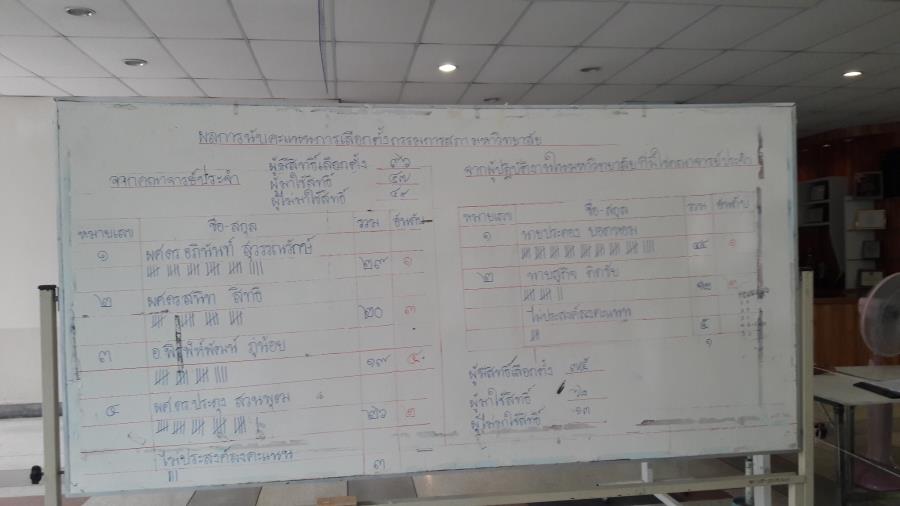 ผลการนับคะแนนการเลือกตั้งกรรมการสภามหาวิทยาลัย
จากคณาจารย์ประจำ
ผู้มีสิทธิ์เลือกตั้ง ๙๖
ผู้มาใช้สิทธิ์ ๔๗
ผู้ไม่มาใช้สิทธิ์ ๔๙
หมายเลข ชื่อ-สกุล รวม อันดับ
๑ ผศ.ดร.อภินันท์ สุวรรณรักษ์ ๒๙ ๑
๒ ผศ.ดร. สิทธิ ๒๐ ๓
๓ อ. ภู่น้อย ๑๙ ๔
๔ ผศ.ดร.ประดุง สวนพุฒ ๒๖ ๒
ไม่ประสงค์ลงคะแนน ๓
จากผู้ปฏิบัติงานในมหาวิทยาลัยที่มิใช่คณาจารย์ประจำ
หมายเลข ชื่อ-สกุล รวม อันดับ
๑ นายประคอง ยอดหอม ๑
๒ นาย ๑๒ ๒
ไม่ประสงค์ลงคะแนน ๕
ผู้มีสิทธิ์เลือกตั้ง ๗๕
ผู้มาใช้สิทธิ์ ๖๒
ผู้ไม่มาใช้สิทธิ์ ๑๓